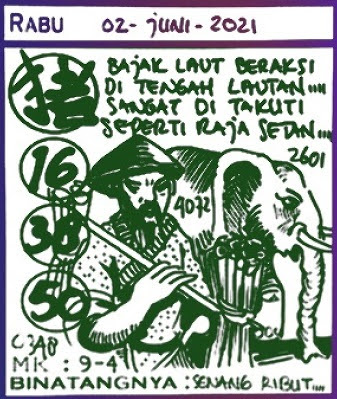 RABU 02-JUNI-2021
BAJAK LAUT BERAKSI
DI TENGAH LAUTAN....
SANGAT DI TAKUTI
SEPERTI RAJA SETAN....
猪
2601
16
4072
38
50
MK : 9-4
BINATANGNYA : SENANG RIBUT....